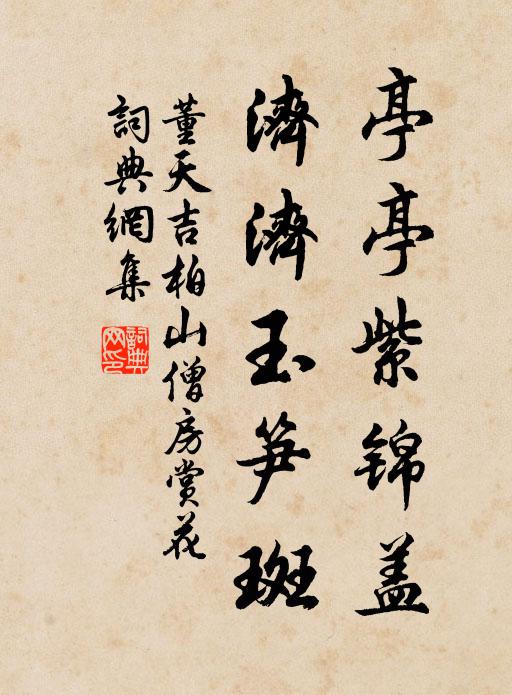 亭亭紫锦盖
濟濟玉笋斑
董天吉柏山僧房赏花
詞典網集
詞典網印